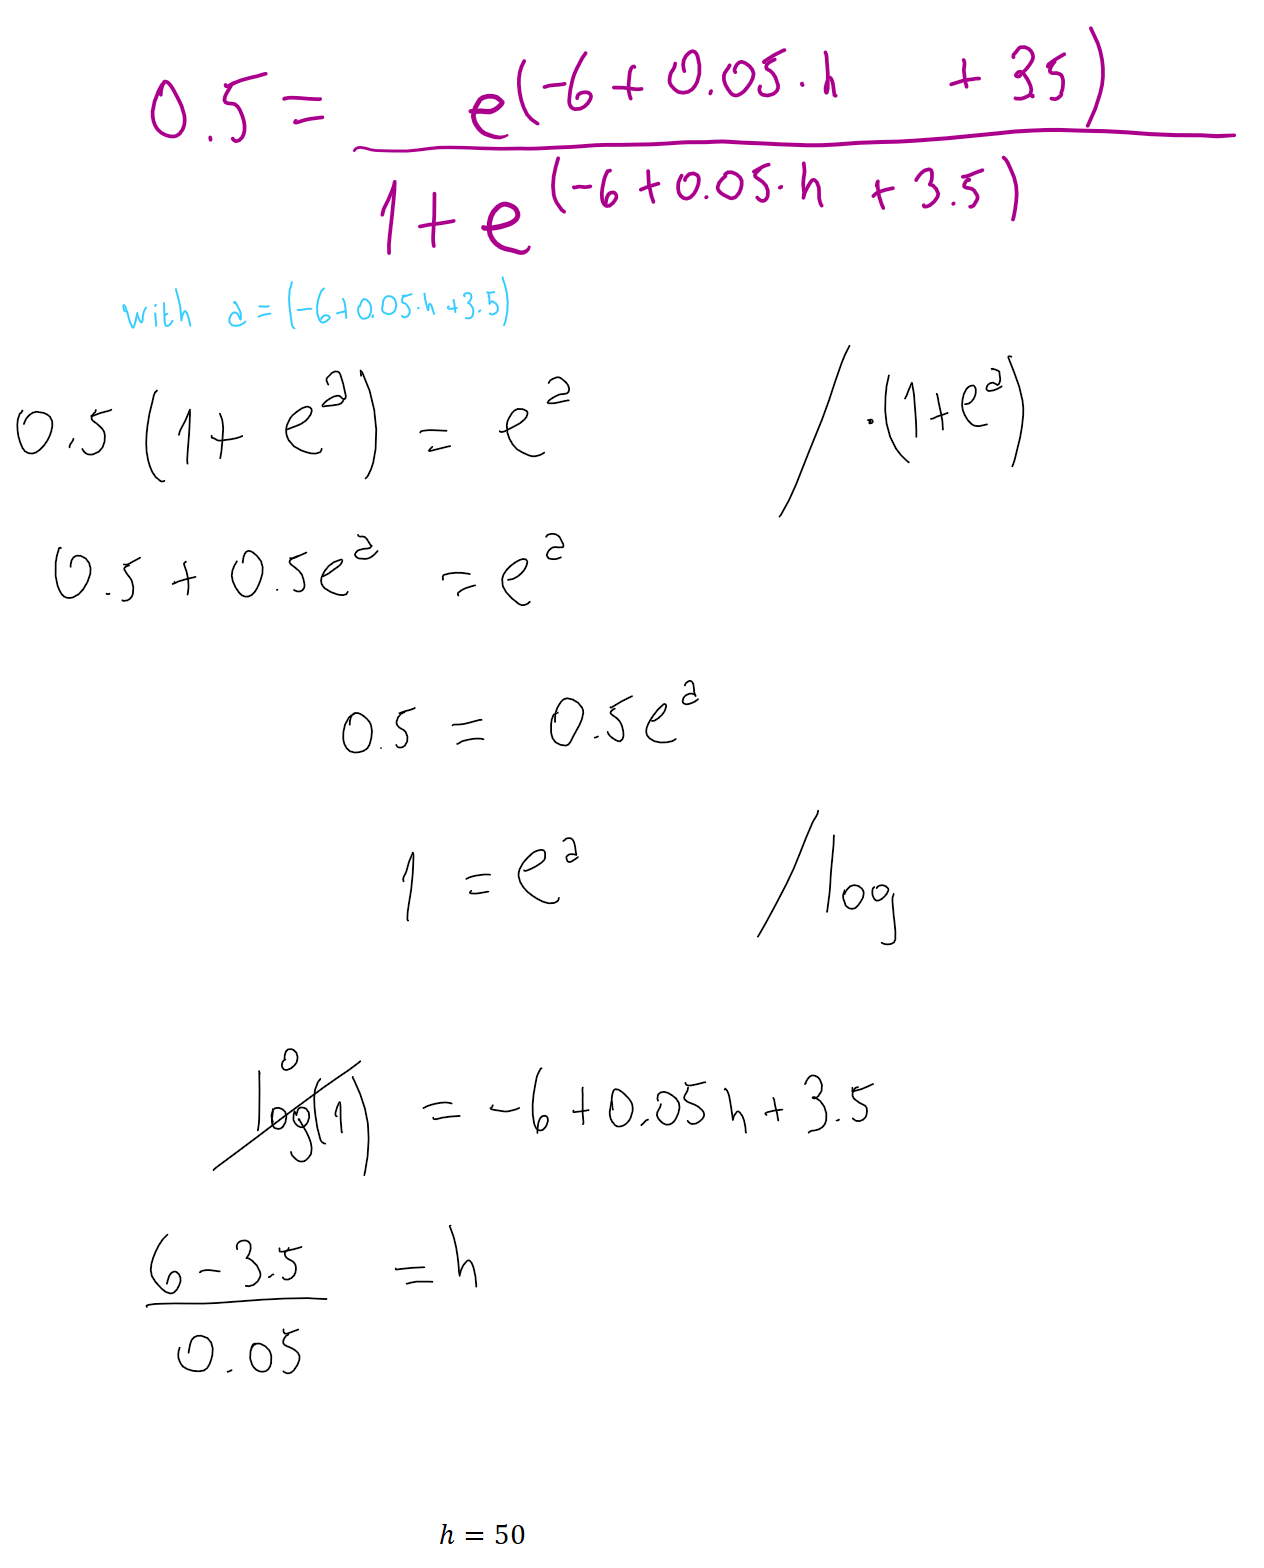 0.5 = e^(-6 + 0.05 · h + 3.5) / 1 + e^(-6 + 0.05 · h + 3.5)
with a = (-6 + 0.05 · h + 3.5)
0.5 (1 + e^a) = e^a / · (1 + e^a)
0.5 + 0.5e^a = e^a
0.5 = 0.5e^a
1 = e^a / log
log(1) 0 = -6 + 0.05 h + 3.5
6 - 3.5 / 0.05 = h
h = 50